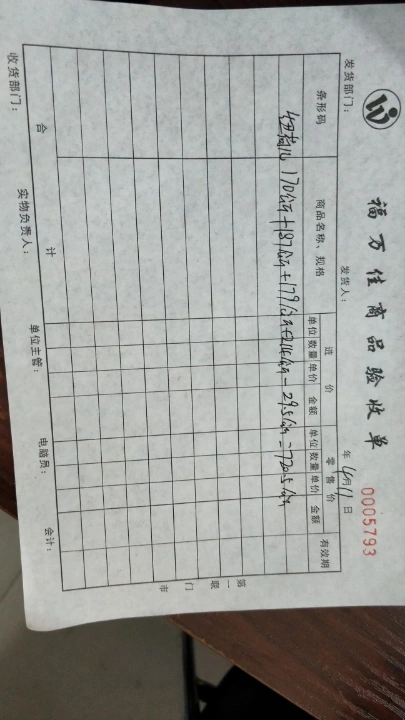 福万佳商品验收单
0005793
发货部门： 发货人： 年 4月 11日
条形码 商品名称、规格 进价 零售价 有效期
单位 数量 单价 金额 单位 数量 单价 金额
170 + 187 + 179 + - 29.5 = 720.5
合计
第一联 门市
收货部门： 实物负责人： 单位主管： 电脑员： 会计：